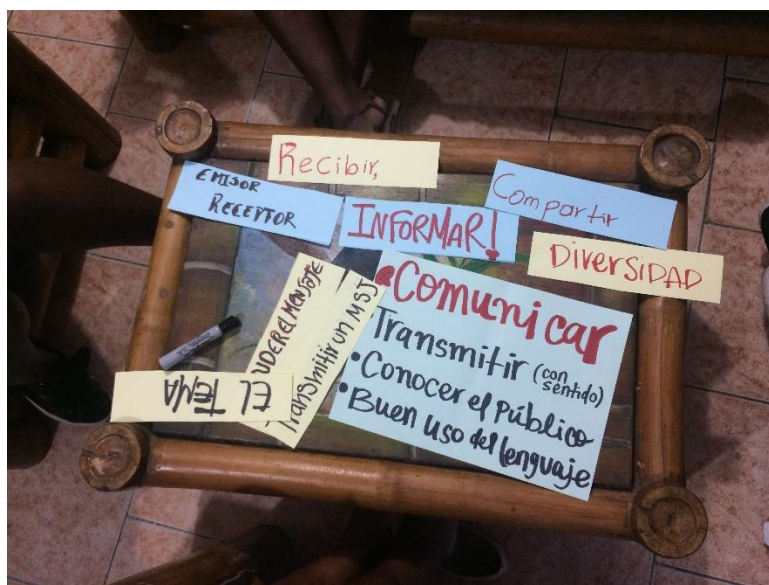 Recibir,
EMISOR
RECEPTOR
Compartir
INFORMAR!
DIVERSIDAD
•Comunicar
Transmitir (con sentido)
•Conocer el Público
•Buen uso del lenguaje
EL MENSAJE
Transmitir un MSJ
EL TEMA